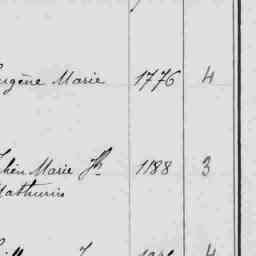 Eugène Marie 1776 4
Julien Marie Jh 1188 3
Mathurin
4